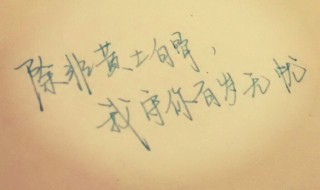 除非黄土白骨，
我守你百岁无忧